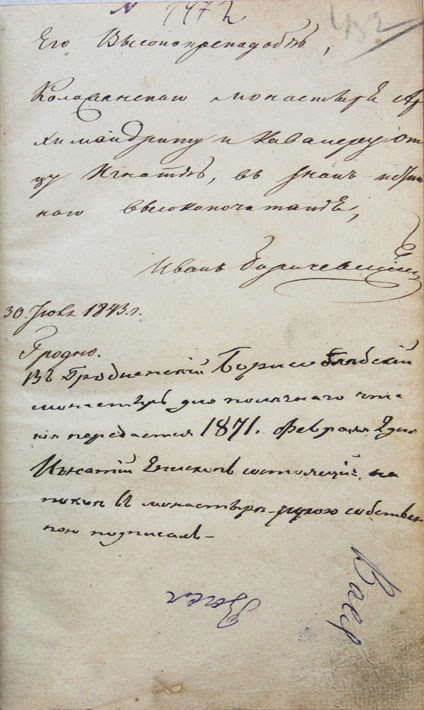 N 9472
432
Его Высокопреподобію,
Коложанскаго монастыря Ар
химандриту и Кавалеру от
цу Игнатію, въ знакъ истин
наго высокопочитанія,
Иванъ
30. 1843 г.
Гродно.
Въ Гродненскій Борисо Глѣбскій
монастырь для полѣзнаго чте
нія передается 1871. февраля 2 дня
Игнатій Епископъ состоящій на
покоѣ монастыря рукою собствен
ною подписалъ